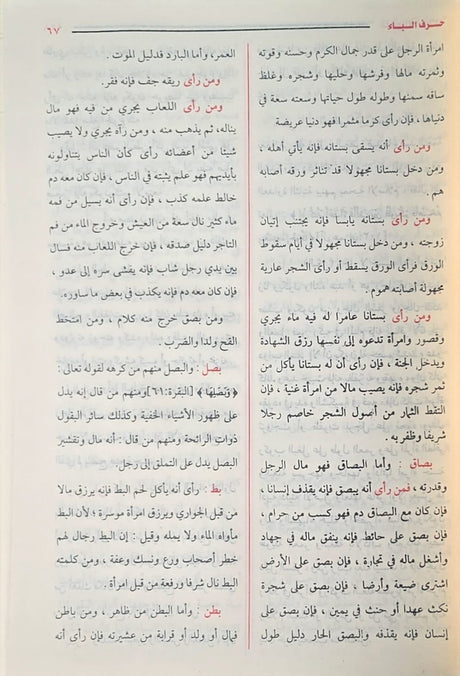 حرف الباء
٦٧
امرأة الرجل على قدر جمال الكرم وحسنه وقوته
وثمرته مالها وفرشها وحليها وشجره وغلظ
ساقه سمنها وطوله طول حياتها وسعته سعة في
دنياها ، فإن رأى كرما مثمرا فهو دنيا عريضة
ومن رأى أنه يسقى بستانه فإنه يأتي أهله ،
ومن دخل بستانا مجهولا قد تناثر ورقه أصابه
هم .
ومن رأى بستانه يابسا فإنه يجتنب إتيان
زوجته ، ومن دخل بستانا مجهولا في أيام سقوط
الورق فرأى الورق يسقط أو رأى الشجر عارية
مجهولة أصابته هموم .
ومن رأى بستانا عامرا له فيه ماء يجري
وقصور وامرأة تدعوه إلى نفسها رزق الشهادة
ويدخل الجنة ، فإن رأى أن له بستانا يأكل من
ثمر شجره فإنه يصيب مالا من امرأة غنية ، فإن
التقط الثمار من أصول الشجر خاصم رجلا
شريفا وظفر به .
بصاق : وأما البصاق فهو مال الرجل
وقدرته ، فمن رأى أنه يبصق فإنه يقذف إنسانا ،
فإن كان مع البصاق دم فهو كسب من حرام ،
فإن بصق على حائط فإنه ينفق ماله في جهاد
وأشغل ماله في تجارة ، فإن بصق على الأرض
اشترى ضيعة وأرضا ، فإن بصق على شجرة
نكث عهدا أو حنث في يمين ، فإن بصق على
إنسان فإنه يقذفه والبصق الحار دليل طول
العمر، وأما البارد فدليل الموت .
ومن رأى ريقه جف فإنه فقر.
ومن رأى اللعاب يجري من فيه فهو مال
يناله، ثم يذهب منه ، ومن رآه يجري ولا يصيب
شيئا من أعضائه رأى كأن الناس يتناولونه
بأيديهم فهو علم يثبته في الناس ، فإن كان معه دم
خالط علمه كذب ، فإن رأى أنه يسيل من فمه
ماء كثير نال سعة من العيش وخروج الماء من فم
التاجر دليل صدقه ، فإن خرج اللعاب منه فسال
بين يدي رجل شاب فإنه يفشى سره إلى عدو ،
فإن كان معه دم فإنه يكذب في بعض ما ساوره.
ومن بصق خرج منه كلام ، ومن امتخط
القح ولدا والضرب.
بصل : والبصل منهم من كرهه لقوله تعالى :
﴿وَبَصَلِهَا﴾ [البقرة:٦١] ومنهم من قال إنه يدل
على ظهور الأشياء الخفية وكذلك سائر البقول
ذوات الرائحة ومنهم من قال : أنه مال وتقشير
البصل يدل على التملق إلى رجل.
بط : رأى أنه يأكل لحم البط فإنه يرزق مالا
من قبل الجواري ويرزق امرأة موسرة ؛ لأن البط
مأواه الماء ولا يمله وقيل : إن البط رجال لهم
خطر أصحاب ورع ونسك وعفة ، ومن كلمته
البط نال شرفا ورفعة من قبل امرأة .
بطن : وأما البطن من ظاهر ، ومن باطن
فمال أو ولد أو قرابة من عشيرته فإن رأى أنه